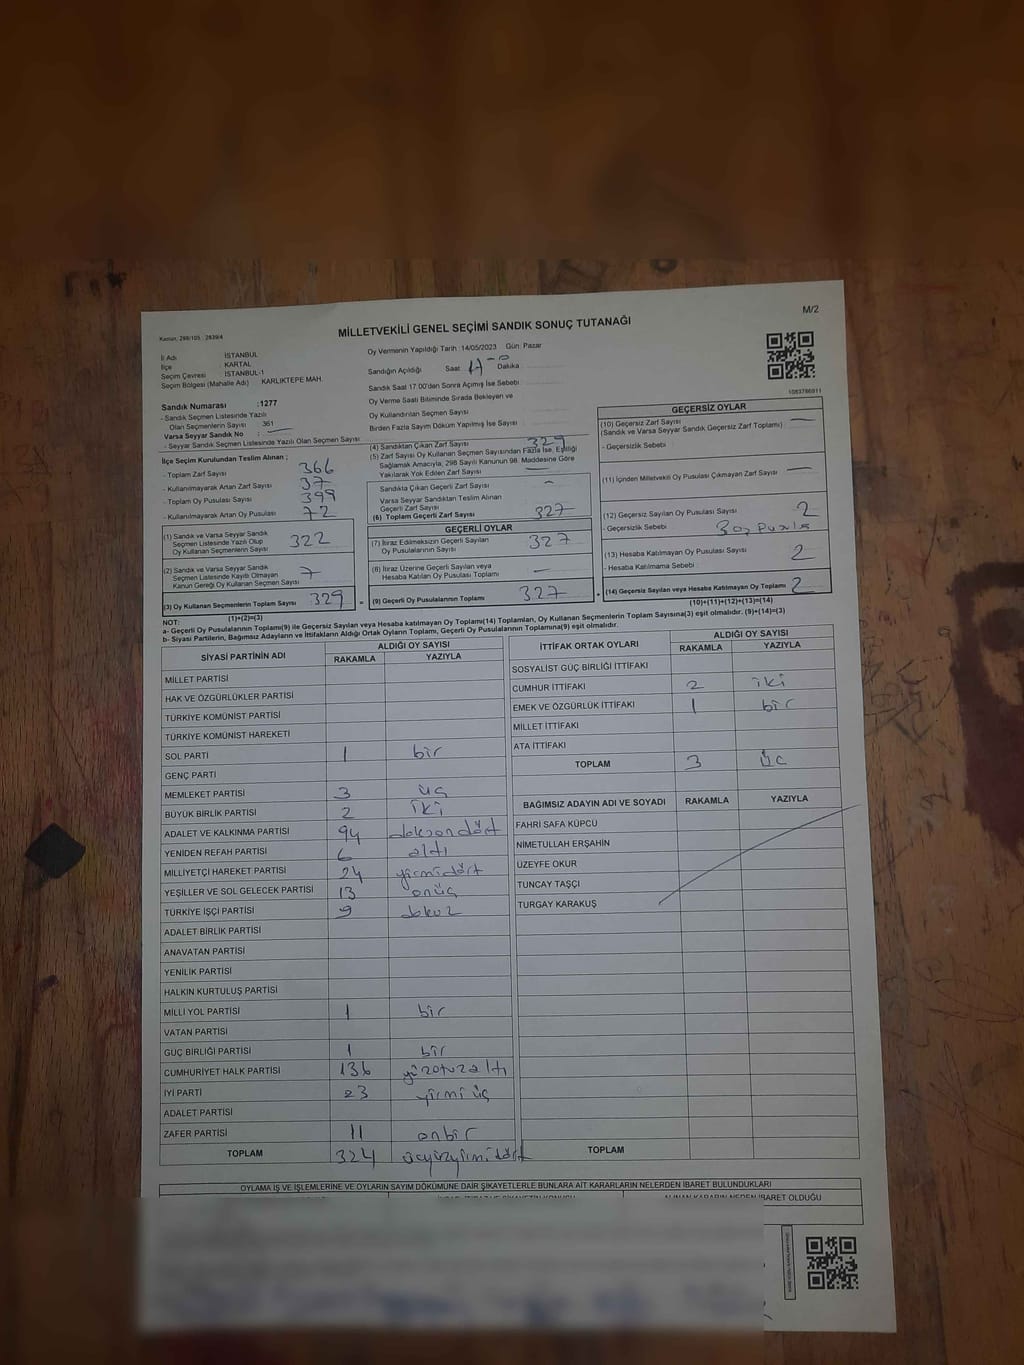 M/2
MİLLETVEKİLİ GENEL SEÇİMİ SANDIK SONUÇ TUTANAĞI
Kanun: 298/105 , 2839/4
İl Adı İSTANBUL
İlçe KARTAL
Seçim Çevresi İSTANBUL-1
Seçim Bölgesi (Mahalle Adı) KARLIKTEPE MAH.
Sandık Numarası :1277
- Sandık Seçmen Listesinde Yazılı
Olan Seçmenlerin Sayısı 361
Varsa Seyyar Sandık No :
- Seyyar Sandık Seçmen Listesinde Yazılı Olan Seçmen Sayısı
Oy Vermenin Yapıldığı Tarih :14/05/2023 Gün: Pazar
Sandığın Açıldığı Saat Dakika
Sandık Saat 17:00'den Sonra Açımış İse Sebebi
Oy Verme Saati Bitiminde Sırada Bekleyen ve
Oy Kullandırılan Seçmen Sayısı
Birden Fazla Sayım Döküm Yapılmış İse Sayısı
İlçe Seçim Kurulundan Teslim Alınan ;
- Toplam Zarf Sayısı 366
- Kullanılmayarak Artan Zarf Sayısı 37
- Toplam Oy Pusulası Sayısı 399
- Kullanılmayarak Artan Oy Pusulası 72
(1) Sandık ve Varsa Seyyar Sandık
Seçmen Listesinde Yazılı Olup
Oy Kullanan Seçmenlerin Sayısı 322
(2) Sandık ve Varsa Seyyar Sandık
Seçmen Listesinde Kayıtlı Olmayan
Kanun Gereği Oy Kullanan Seçmen Sayısı 7
(3) Oy Kullanan Seçmenlerin Toplam Sayısı 329
(1)+(2)=(3)
(4) Sandıktan Çıkan Zarf Sayısı 329
(5) Zarf Sayısı Oy Kullanan Seçmen Sayısından Fazla İse, Eşitliği
Sağlamak Amacıyla, 298 Sayılı Kanunun 98. Maddesine Göre
Yakılarak Yok Edilen Zarf Sayısı —
Sandıkta Çıkan Geçerli Zarf Sayısı -
Varsa Seyyar Sandıktan Teslim Alınan
Geçerli Zarf Sayısı
(6) Toplam Geçerli Zarf Sayısı 327
GEÇERLİ OYLAR
(7) İtiraz Edilmeksizin Geçerli Sayılan
Oy Pusulalarının Sayısı 327
(8) İtiraz Üzerine Geçerli Sayılan veya
Hesaba Katılan Oy Pusulası Toplamı —
= (9) Geçerli Oy Pusulalarının Toplamı 327
GEÇERSİZ OYLAR
(10) Geçersiz Zarf Sayısı —
(Sandık ve Varsa Seyyar Sandık Geçersiz Zarf Toplamı)
- Geçersizlik Sebebi
(11) İçinden Milletvekili Oy Pusulası Çıkmayan Zarf Sayısı —
(12) Geçersiz Sayılan Oy Pusulası Sayısı 2
- Geçersizlik Sebebi
(13) Hesaba Katılmayan Oy Pusulası Sayısı 2
- Hesaba Katılmama Sebebi
+ (14) Geçersiz Sayılan veya Hesaba Katılmayan Oy Toplamı 2
(10)+(11)+(12)+(13)=(14)
NOT:
a- Geçerli Oy Pusulalarının Toplamı(9) ile Geçersiz Sayılan veya Hesaba katılmayan Oy Toplamı(14) Toplamları, Oy Kullanan Seçmenlerin Toplam Sayısına(3) eşit olmalıdır. (9)+(14)=(3)
b- Siyasi Partilerin, Bağımsız Adayların ve İttifakların Aldığı Ortak Oyların Toplamı, Geçerli Oy Pusulalarının Toplamına(9) eşit olmalıdır.
SİYASİ PARTİNİN ADI ALDIĞI OY SAYISI
RAKAMLA YAZIYLA
MİLLET PARTİSİ
HAK VE ÖZGÜRLÜKLER PARTİSİ
TÜRKİYE KOMÜNİST PARTİSİ
TÜRKİYE KOMÜNİST HAREKETİ
SOL PARTİ 1 bir
GENÇ PARTİ
MEMLEKET PARTİSİ 3 üç
BÜYÜK BİRLİK PARTİSİ 2 iki
ADALET VE KALKINMA PARTİSİ 94 doksan dört
YENİDEN REFAH PARTİSİ 6 altı
MİLLİYETÇİ HAREKET PARTİSİ 24 yirmidört
YEŞİLLER VE SOL GELECEK PARTİSİ 13 onüç
TÜRKİYE İŞÇİ PARTİSİ 9 dokuz
ADALET BİRLİK PARTİSİ
ANAVATAN PARTİSİ
YENİLİK PARTİSİ
HALKIN KURTULUŞ PARTİSİ
MİLLİ YOL PARTİSİ 1 bir
VATAN PARTİSİ
GÜÇ BİRLİĞİ PARTİSİ 1 bir
CUMHURİYET HALK PARTİSİ 136 yüzotuzaltı
İYİ PARTİ 23 yirmi üç
ADALET PARTİSİ
ZAFER PARTİSİ 11 onbir
TOPLAM 324 üçyüzyirmidört
İTTİFAK ORTAK OYLARI ALDIĞI OY SAYISI
RAKAMLA YAZIYLA
SOSYALİST GÜÇ BİRLİĞİ İTTİFAKI
CUMHUR İTTİFAKI 2 iki
EMEK VE ÖZGÜRLÜK İTTİFAKI 1 bir
MİLLET İTTİFAKI
ATA İTTİFAKI
TOPLAM 3 üç
BAĞIMSIZ ADAYIN ADI VE SOYADI RAKAMLA YAZIYLA
FAHRİ SAFA KÜPCÜ
NİMETULLAH ERŞAHİN
ÜZEYFE OKUR
TUNCAY TAŞÇI
TURGAY KARAKUŞ
TOPLAM
OYLAMA İŞ VE İŞLEMLERİNE VE OYLARIN SAYIM DÖKÜMÜNE DAİR ŞİKAYETLERLE BUNLARA AİT KARARLARIN NELERDEN İBARET BULUNDUKLARI
ALINAN KARARIN NEDEN İBARET OLDUĞU